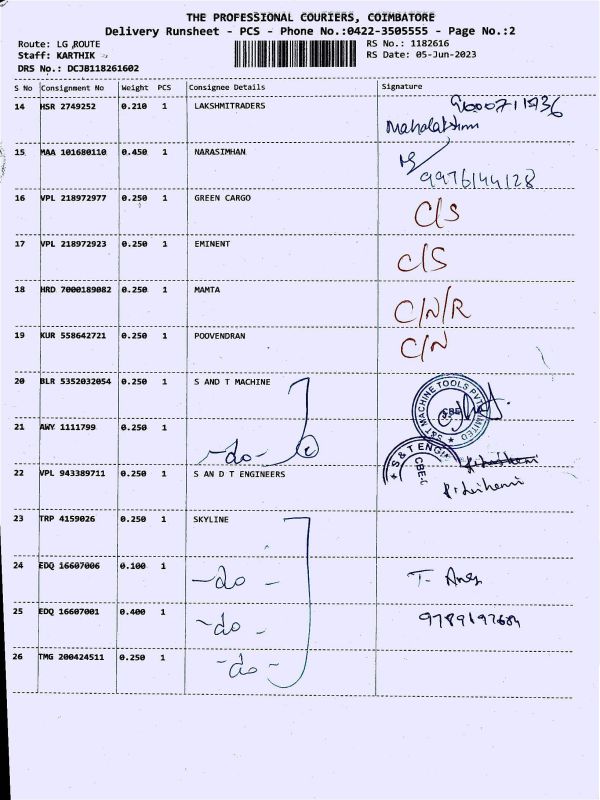 THE PROFESSIONAL COURIERS, COIMBATORE
Delivery Runsheet - PCS - Phone No.:0422-3505555 - Page No.:2
Route: LG ROUTE
RS No.: 1182616
Staff: KARTHIK
RS Date: 05-Jun-2023
DRS No.: DCJB118261602
S No Consignment No Weight PCS Consignee Details Signature
14 HSR 2749252 0.210 1 LAKSHMITRADERS
Mahalakshmi
15 MAA 101680110 0.450 1 NARASIMHAN
9976144128
16 VPL 218972977 0.250 1 GREEN CARGO C/S
17 VPL 218972923 0.250 1 EMINENT C/S
18 HRD 7000189082 0.250 1 MAMTA C/N/R
19 KUR 558642721 0.250 1 POOVENDRAN C/N
20 BLR 5352032054 0.250 1 S AND T MACHINE
S&T MACHINE TOOLS PVT LIMITED
CBE
21 AWY 1111799 0.250 1
-do-
S & T ENGI
CBE-
22 VPL 943389711 0.250 1 S AND T ENGINEERS
23 TRP 4159026 0.250 1 SKYLINE
24 EDQ 16607006 0.100 1 -do-
25 EDQ 16607001 0.400 1 -do-
26 TMG 200424511 0.250 1 -do-